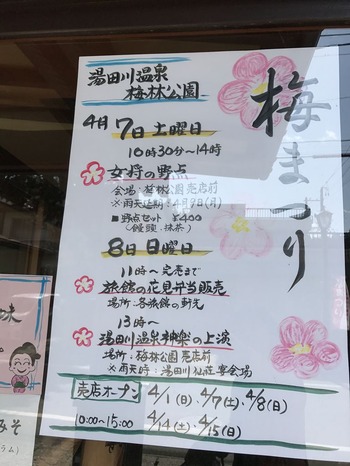 梅まつり
湯田川温泉
梅林公園
4月
7日土曜日
10時30分〜14時
女将の野点
会場：梅林公園売店前
※雨天延期4月9日(月)
■野点セット ¥400
(饅頭・抹茶)
8日日曜日
11時〜完売まで
旅館の花見弁当販売
場所：各旅館の軒先
13時〜
湯田川温泉神楽の上演
場所：梅林公園売店前
※雨天時：湯田川仙荘宴会場
売店オープン
4/1(日)・4/7(土)・4/8(日)
10:00〜15:00
4/14(土)・4/15(日)
味
みそ
ラム)